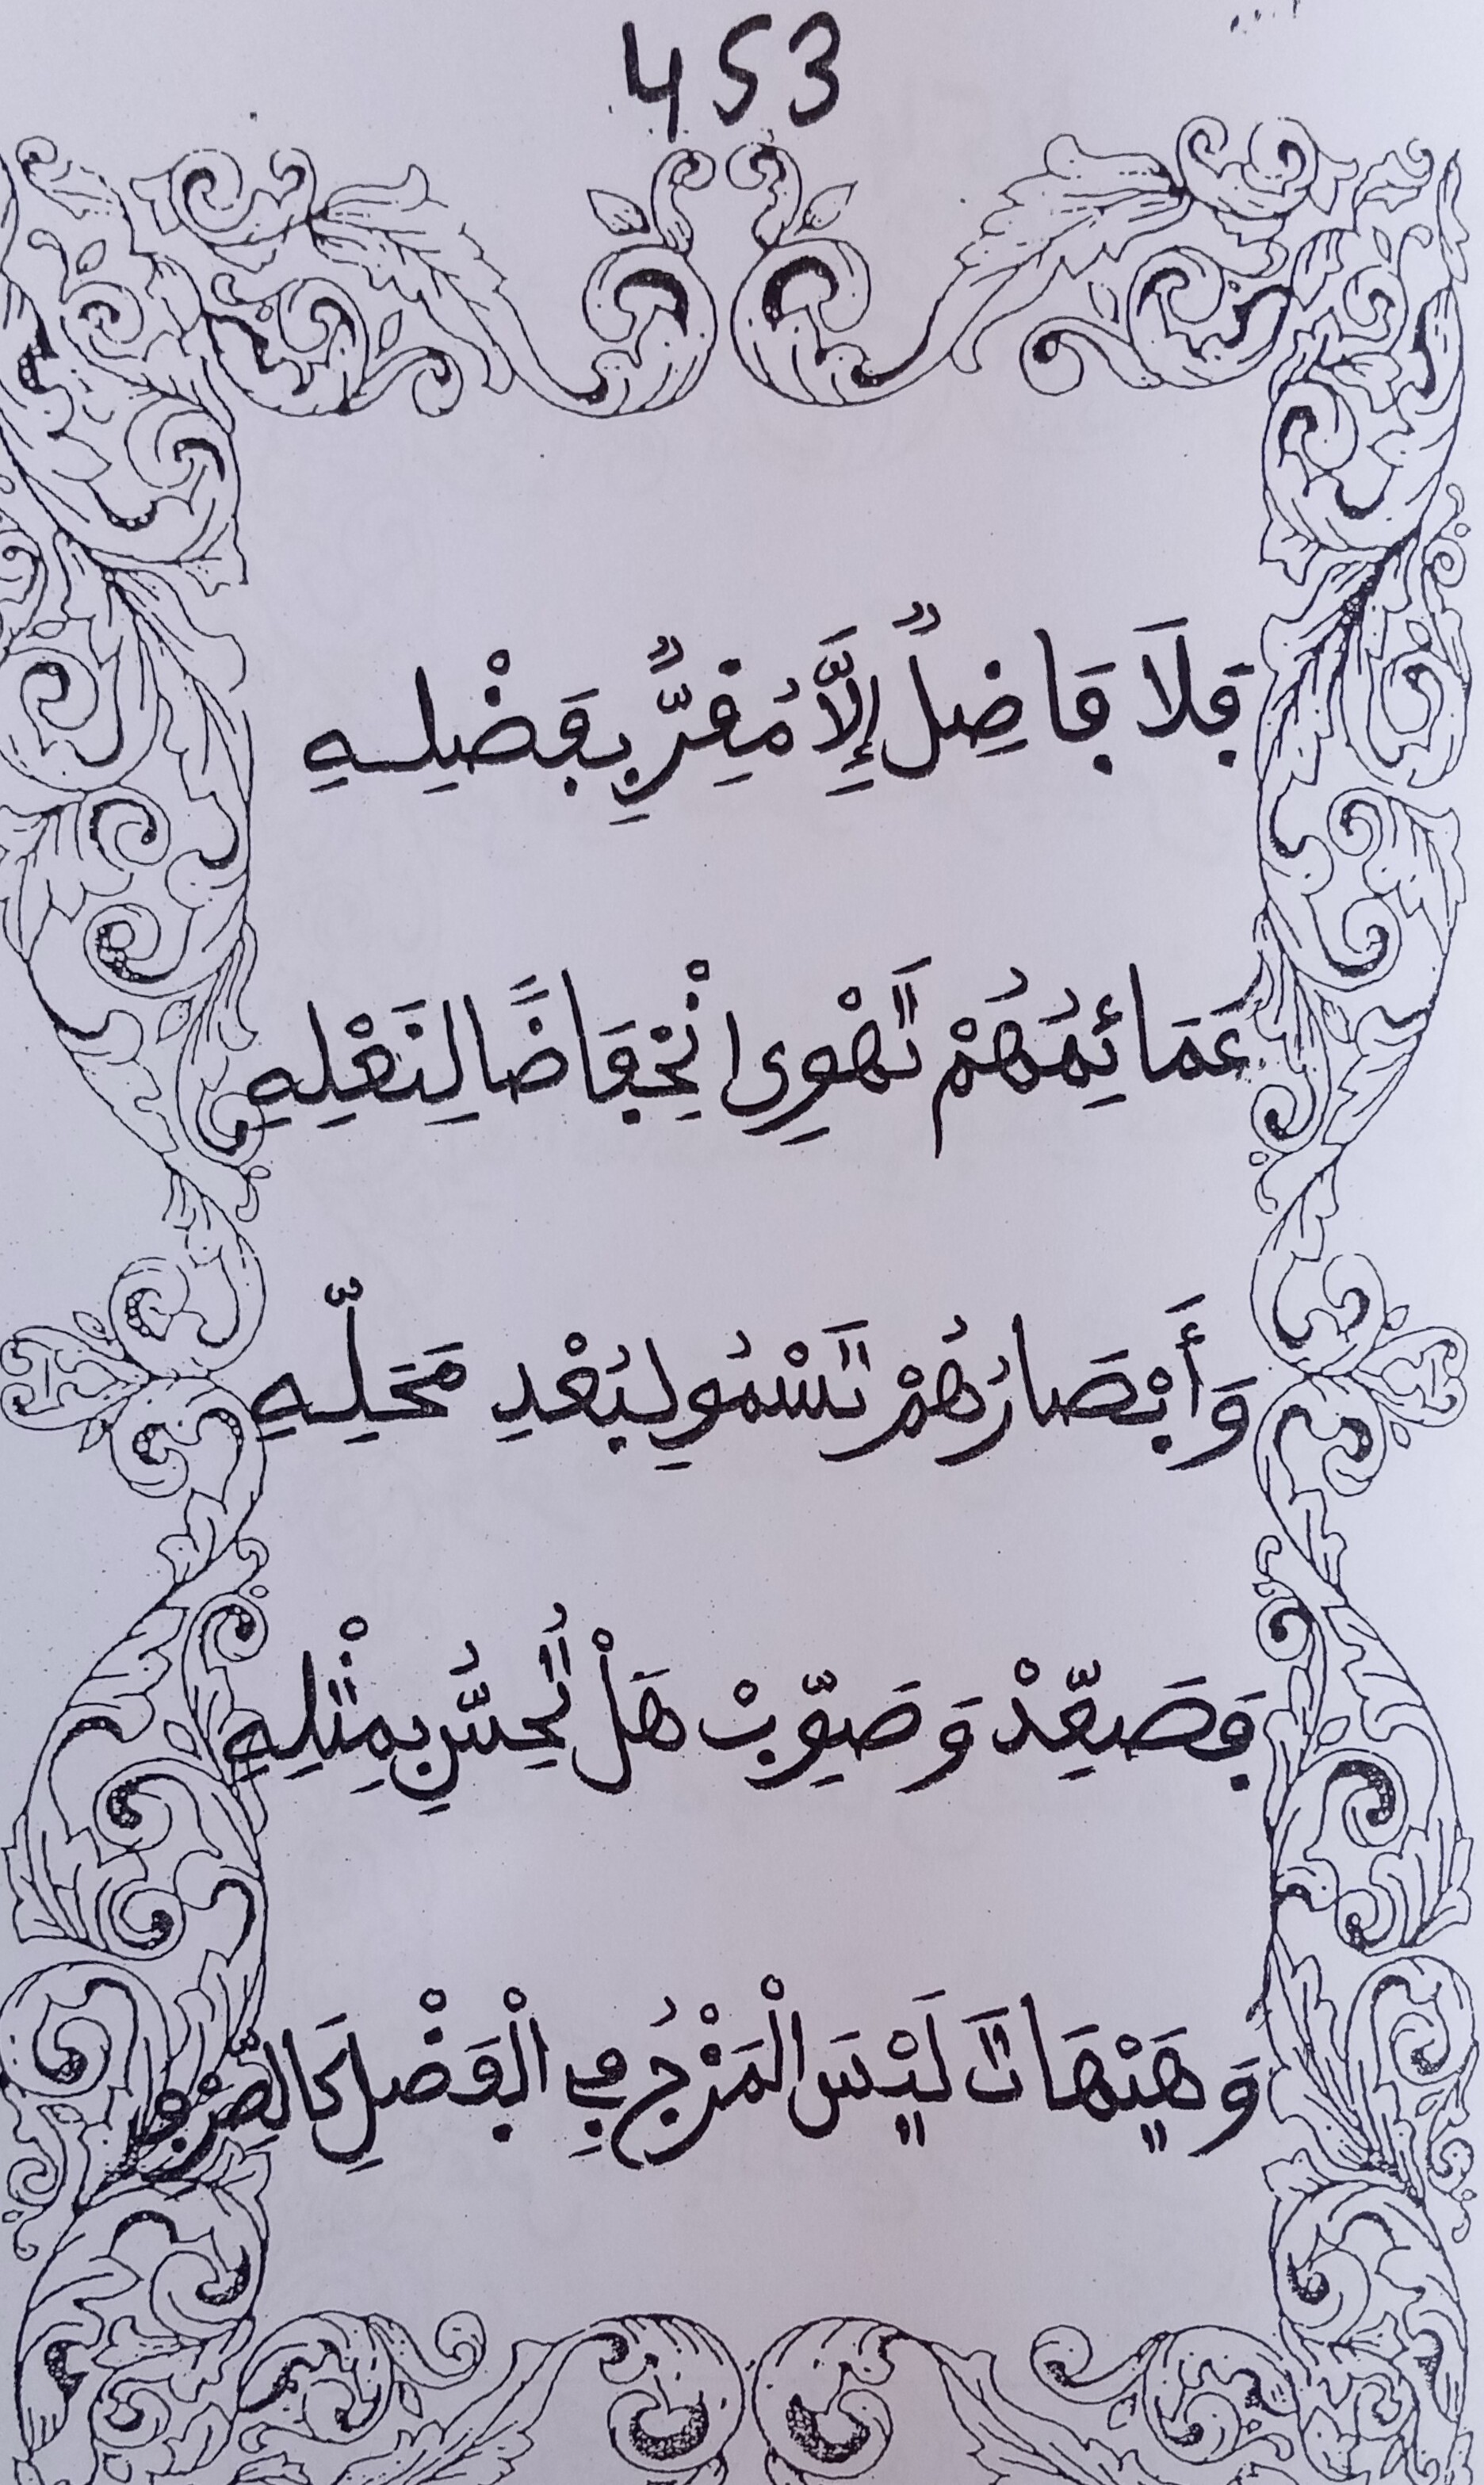 453
فَلَا فَاضِلٌ إِلَّا مُقِرٌّ بِفَضْلِهِ
عَمَائِمُهُمْ تَهْوِى انْخِفَاضًا لِنَعْلِهِ
وَأَبْصَارُهُمْ تَسْمُو لِبُعْدِ مَحَلِّهِ
فَصَعِّدْ وَصَوِّبْ هَلْ تُحِسُّ بِمِثْلِهِ
وَهَيْهَاتَ لَيْسَ الْمَزْجُ فِي الْفَضْلِ كَالصِّرْفِ